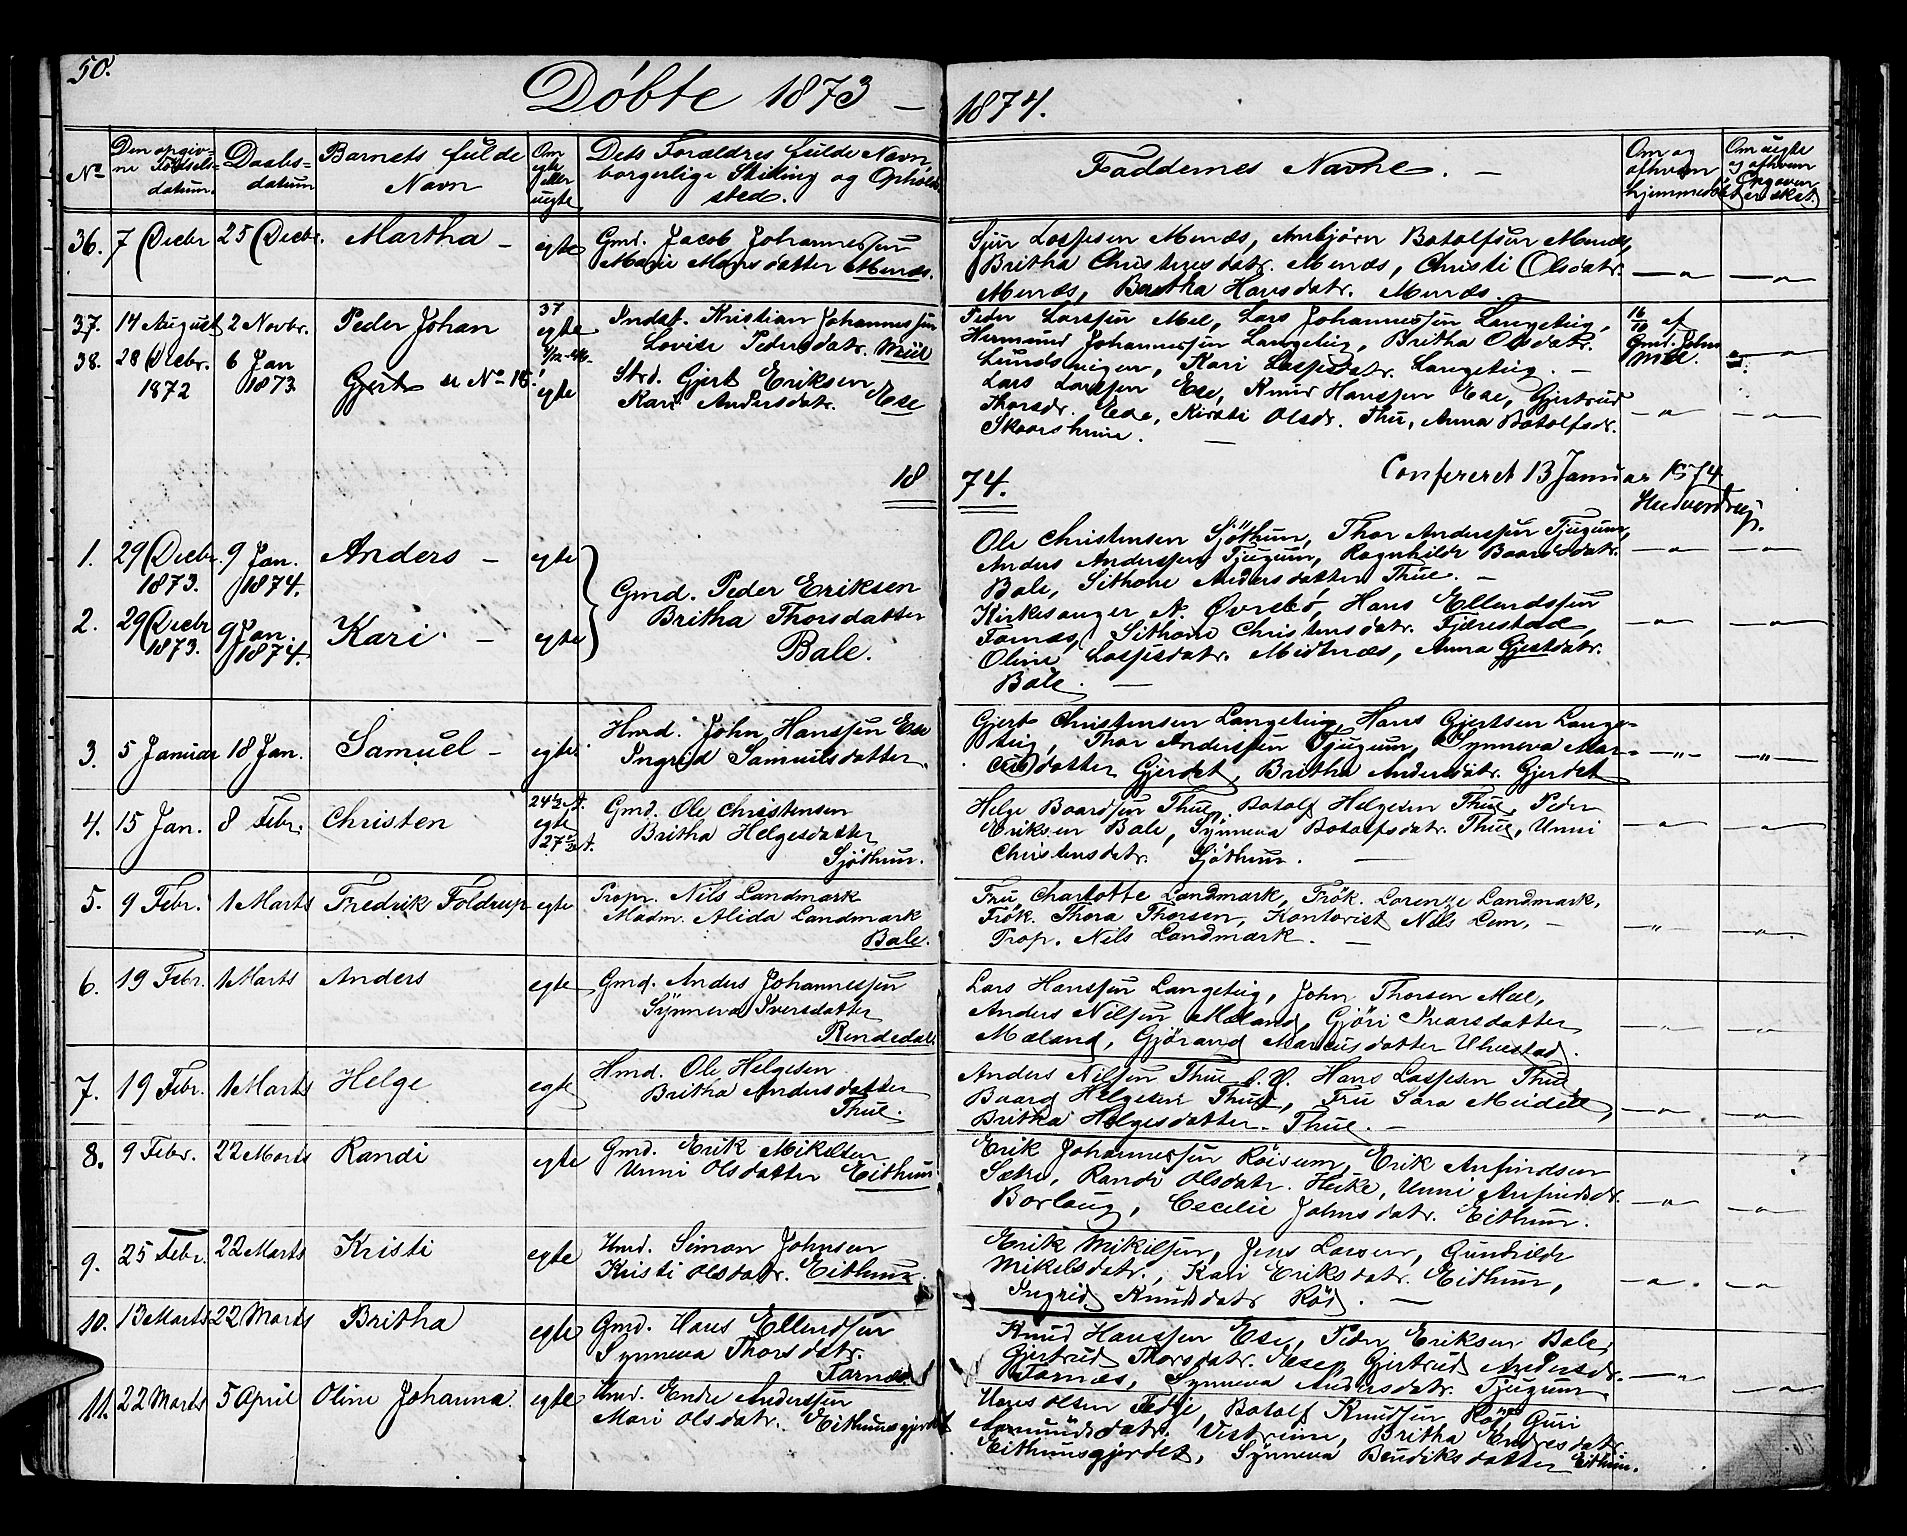 50.
Döbte 1873 – 1874.
No
Den opgiv-
ne Fødsels-
datum.
Daabs-
datum
Barnets fulde
Navn
Om
egte
eller
uegte
Dets Forældres fulde Navn,
borgerlige Stilling og Opholds
sted.
Faddernes Navne. –
Om og
afhvem
hjemmedøbt
Om uegte
og afhvem
Opgaven
er sket.
36. 7 Decbr 25 Decbr. Martha – egte Gmd. Jacob Johannessen
Marie Mons datter Menæs.
Sjur Lassesen Menæs, Anbjörn Botolfsen Menæs,
Britha Christensdatr. Menæs, Christi Olsdatr.
Menæs, Britha Hansdatr. Menæs.
37. 14 August 2 Novbr. Peder Johan 37 egte Indst. Kristian Johannessen
Lovise Pedersdatr.
Peder Larssen Mel, Lars Johannessen Langeteig,
Hermund Johannessen Langeteig, Britha Olsdatr.
Kari Lassesdatr. Langeteig. –
16/10 af
Gmd. John
Mel.
38. 28 Decbr. 1872 6 Jan 1873 Gjert se No 16. egte Strd. Gjert Eriksen
Kari Andersdatr. Ese
Lars Larssen Ese, Knud Hanssen Ese, Gjertrud
Thorsdr. Ese, Kirsti Olsdr. Thue, Anna Botolfsdr.
18 74.
Confereret 13 Januar 1874
1. 29 Decbr. 1873. 9 Jan. 1874. Anders – egte
Gmd. Peder Eriksen
Britha Thorsdatter
Bale.
Ole Christensen Sjöthun, Thor Anderssen Tjugum,
Anders Anderssen Tjugum, Ragnhilde Baardsdatr.
Bale, Sithone Andersdatter Thue. –
2. 29 Decbr 1873. 9 Jan. 1874. Kari. – egte
Kirkesanger A. Øvrebö, Hans Ellendssen
Farnæs, Sithone Christensdatr. Fjærestad,
Oline Lassesdatr. Midtnæs, Anna Gjertsdatr.
Bale. –
3. 5 Januar 18 Jan. Samuel – egte Hmd. John Hanssen Ese
Ingrid Samuelsdatter.
Gjert Christensen Langeteig, Hans Gjertsen Lange-
teig, Thor Anderssen Tjugum, Synneva Mar-
cusdatter Gjerdet, Britha Andersdatr. Gjerdet
4. 15 Jan. 8 Febr. Christen egte Gmd. Ole Christensen
Britha Helgesdatter
Sjöthun.
Helge Baardsen Thue, Botolf Helgesen Thue, Peder
Eriksen Bale, Synneva Botolfsdatr. Thue, Unni
Christensdatr. Sjöthun. –
5. 9 Febr. 1 Marts Fredrik Foldrup egte Propr. Nils Landmark
Madm. Alida Landmark
Bale.
Fru Charlotte Landmark, Frök. Lorenze Landmark,
Frök. Thora Thorsen, Kontorist Nils Lem, –
Prop. Nils Landmark. –
6. 19 Febr. 1 Marts Anders egte Gmd. Anders Johannessen
Synneva Iversdatter
Rendedal.
Lars Hanssen Langeteig, John Thorsen Mæl,
Anders Nilsen Mæland, Gjöri Ivarsdatter
Mæland, Gjörand Marcusdatter
7. 19 Febr. 1 Marts Helge egte Hmd. Ole Helgesen
Britha Andersdatter
Thue.
Anders Nilsen Thue, Hans Lassesen Thue
Baard Helgesen Thue, Fru Sara Meidell,
Britha Helgesdatter. Thue. –
8. 9 Febr. 22 Marts Randi egte Gmd. Erik Mikelsen
Unni Olsdatter Eithun
Erik Johannessen Röisum, Erik Anfindsen
Sætre, Randi Olsdatr. Unni Anfindsdr.
Borlaug, Cecelie Johnsdatr. Eithun.
9. 25 Febr. 22 Marts Kristi egte Hmd. Simon Johnsen
Kristi Olsdatr. Eithun.
Erik Mikelsen, Jens Larsen, Gunhilde
Mikelsdatr., Kari Eriksdatr. Eidhun,
Ingrid Knudsdatr Röd. –
10. 13 Marts 22 Marts Britha egte Gmd. Hans Ellendsen
Synneva Thorsdatr.
Farnæs
Knud Hanssen Ese, Peder Eriksen Bale,
Gjertrud Thorsdatr. Ese, Gjertrud Andersdr.
Farnæs, Synneva Andersdatr. Tjugum
11. 22 Marts 5 April Oline Johanna. egte Hmd. Endre Anderssen
Mari Olsdatr. Eithunsgjerdet
Hans Olsen Botolf Knudsen Guri
Britha Endresdatr
Eithunsgjerdet, Synneva Bendiksdatter Eithun.